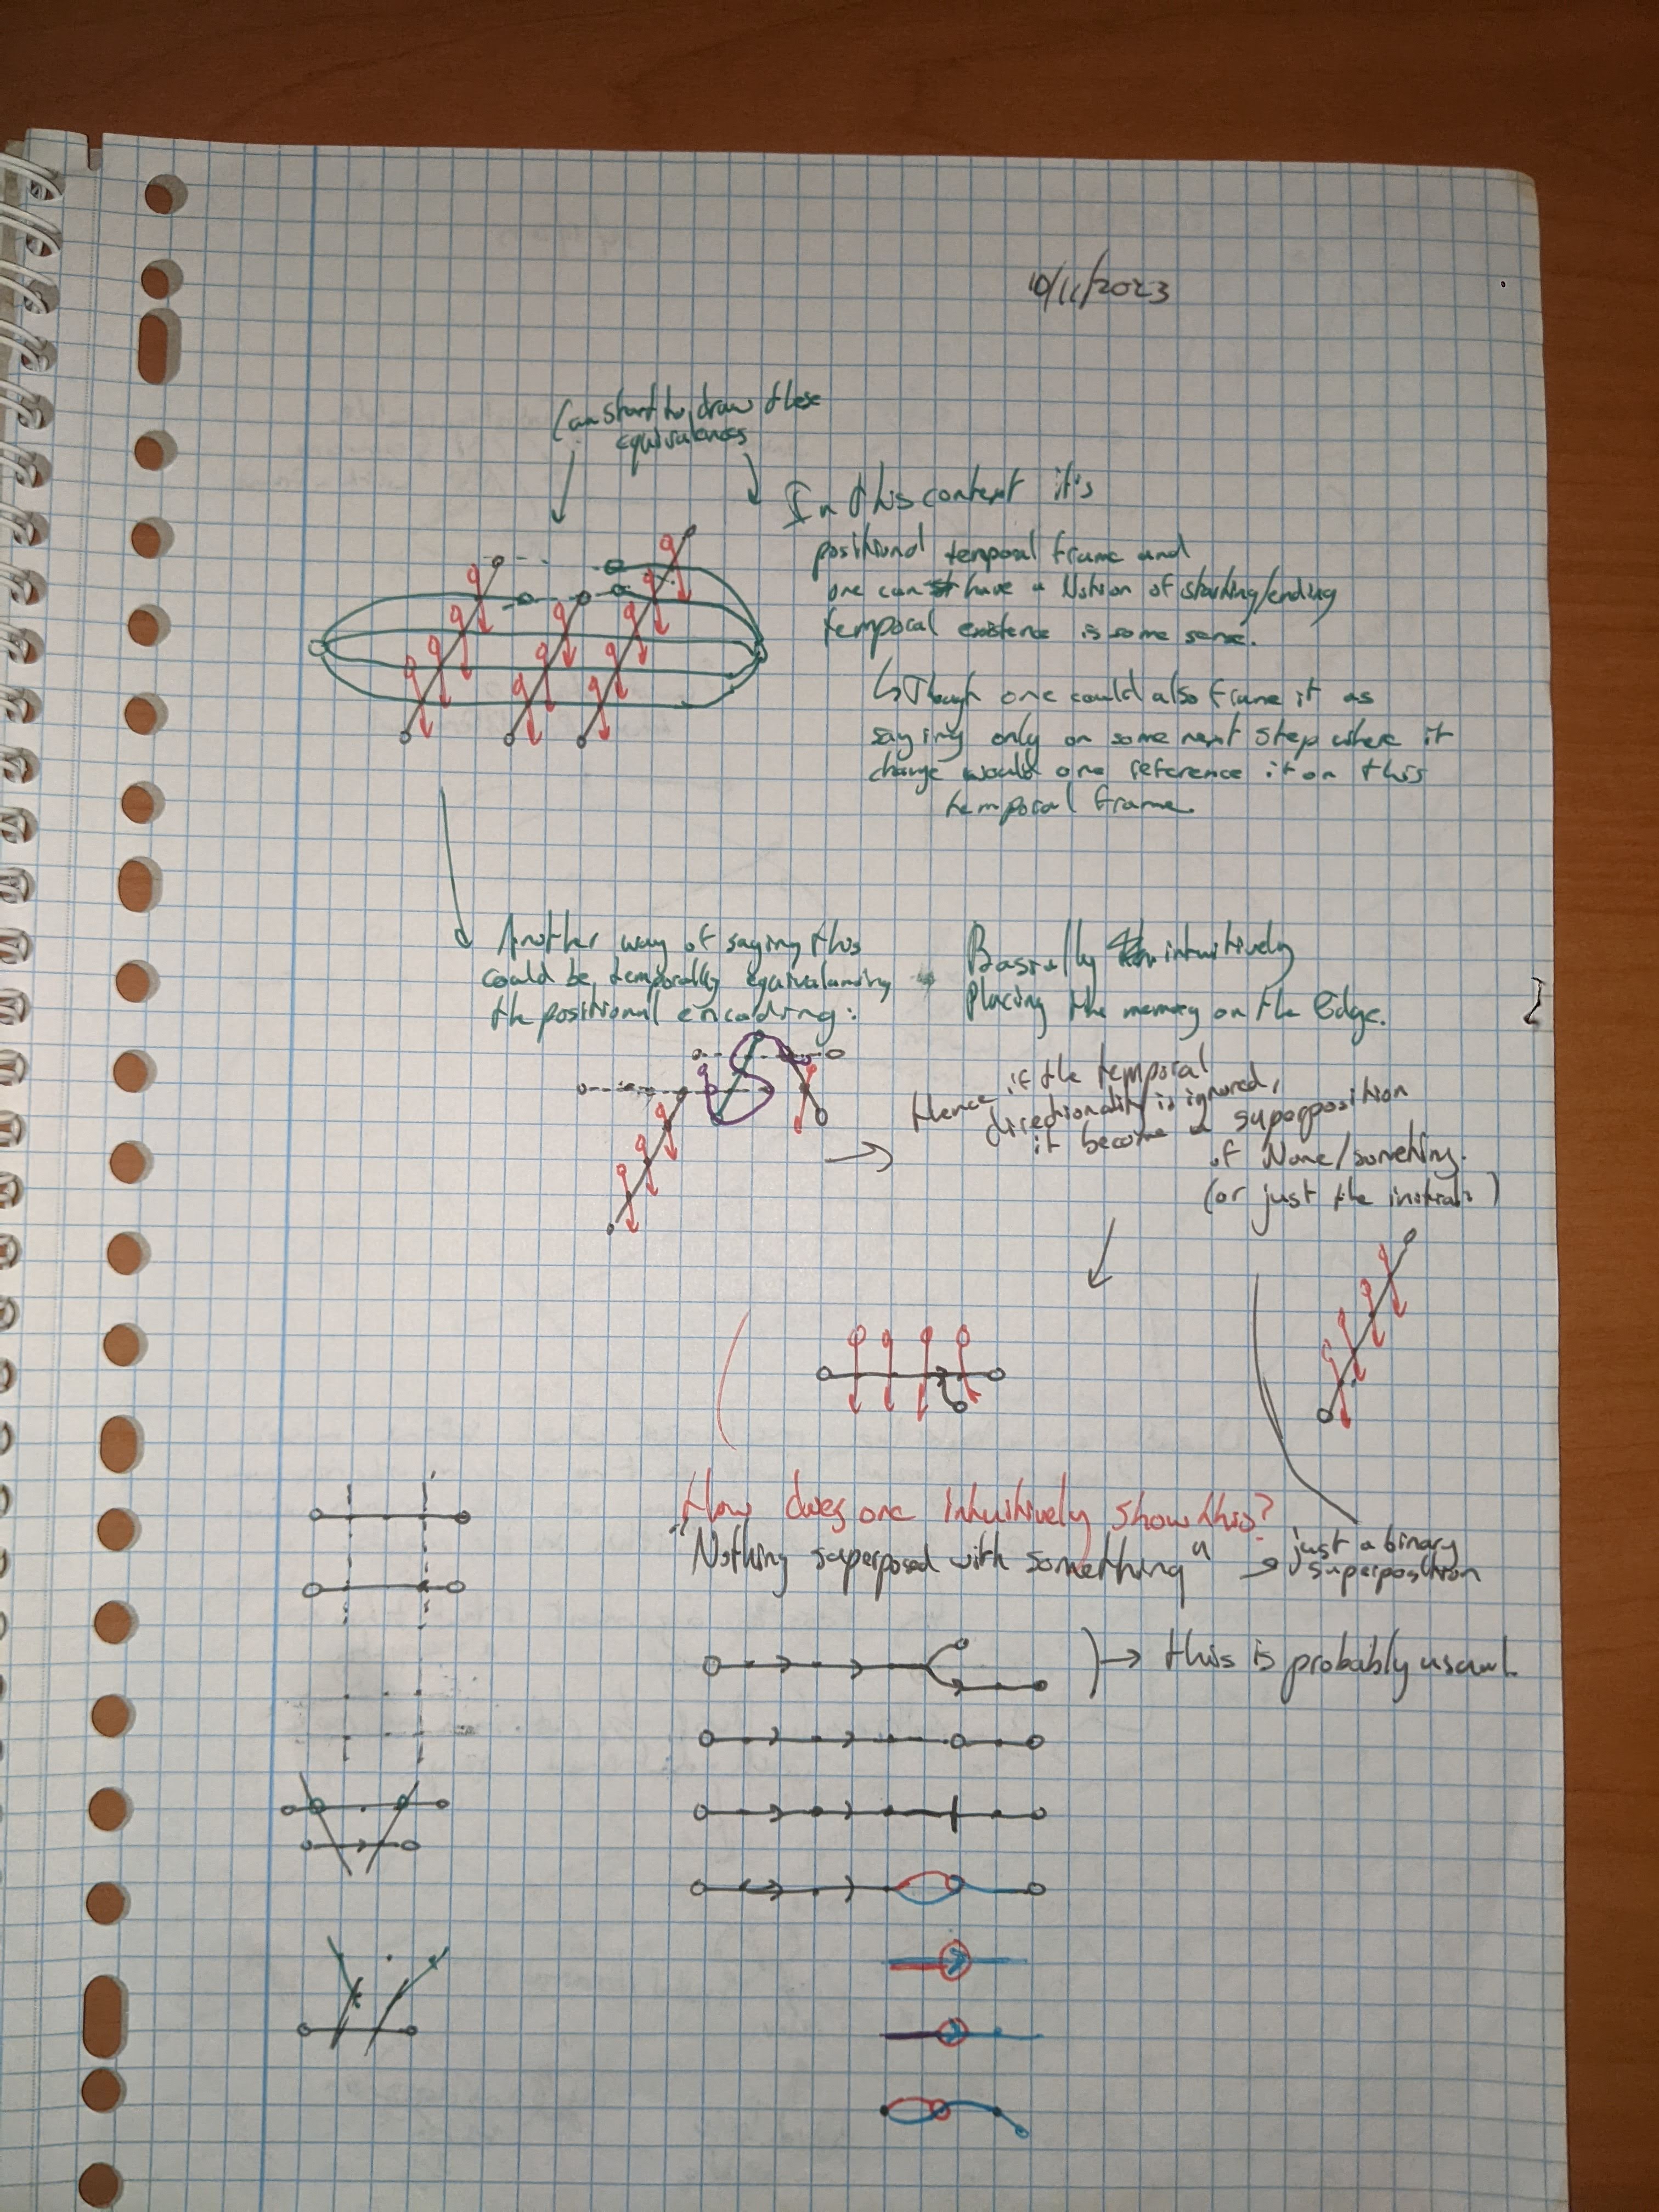 10/11/2023
Can start to draw these
equivalences
In this context it's
positional temporal frame and
one can have a Notion of starting/ending
temporal existence is some sense.
↳ Though one could also frame it as
saying only on some next step where it
change would one reference it on this
temporal frame.
Another way of saying this
could be, temporally equivalancing
the positional encoding:
Basically intuitively
Placing the memory on the Edge.
Hence if the temporal
directionality is ignored,
it become a superposition
of None/something.
(or just the initial)
How does one intuitively show this?
"Nothing superposed with something"
→ just a binary
superposition
→ this is probably usual